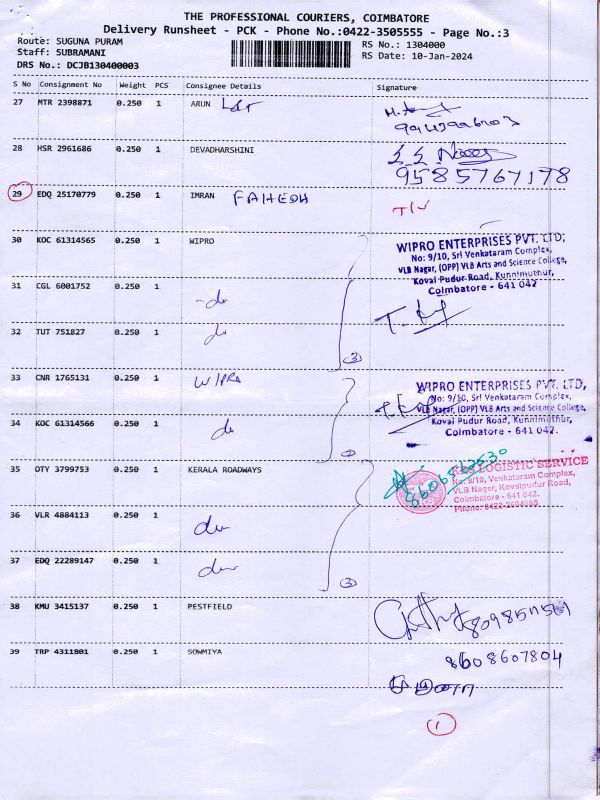 THE PROFESSIONAL COURIERS, COIMBATORE
Delivery Runsheet - PCK - Phone No.:0422-3505555 - Page No.:3
Route: SUGUNA PURAM
Staff: SUBRAMANI
DRS No.: DCJB130400003
RS No.: 1304000
RS Date: 10-Jan-2024
S No Consignment No Weight PCS Consignee Details Signature
27 MTR 2398871 0.250 1 ARUN
28 HSR 2961686 0.250 1 DEVADHARSHINI
9585767178
29 EDQ 25170779 0.250 1 IMRAN
30 KOC 61314565 0.250 1 WIPRO
WIPRO ENTERPRISES PVT. LTD,
No: 9/10, Sri Venkataram Complex,
VLB Nagar, (OPP) VLB Arts and Science College,
Kovai Pudur Road, Kunnimuthur,
Coimbatore - 641 042.
31 CGL 6001752 0.250 1 - do
32 TUT 751827 0.250 1 do
3
33 CNR 1765131 0.250 1 WIPRO
WIPRO ENTERPRISES PVT. LTD,
No: 9/10, Sri Venkataram Complex,
VLB Nagar, (OPP) VLB Arts and Science College,
Kovai Pudur Road, Kunnimuthur,
Coimbatore - 641 042.
34 KOC 61314566 0.250 1 do
2
35 OTY 3799753 0.250 1 KERALA ROADWAYS
LOGISTIC SERVICE
No. 9/10, Venkataram Complex,
VLB Nagar, Kovaipudur Road,
Coimbatore - 641 042.
36 VLR 4884113 0.250 1 do
37 EDQ 22289147 0.250 1 do
3
38 KMU 3415137 0.250 1 PESTFIELD
39 TRP 4311801 0.250 1 SOWMIYA
8608607804
1